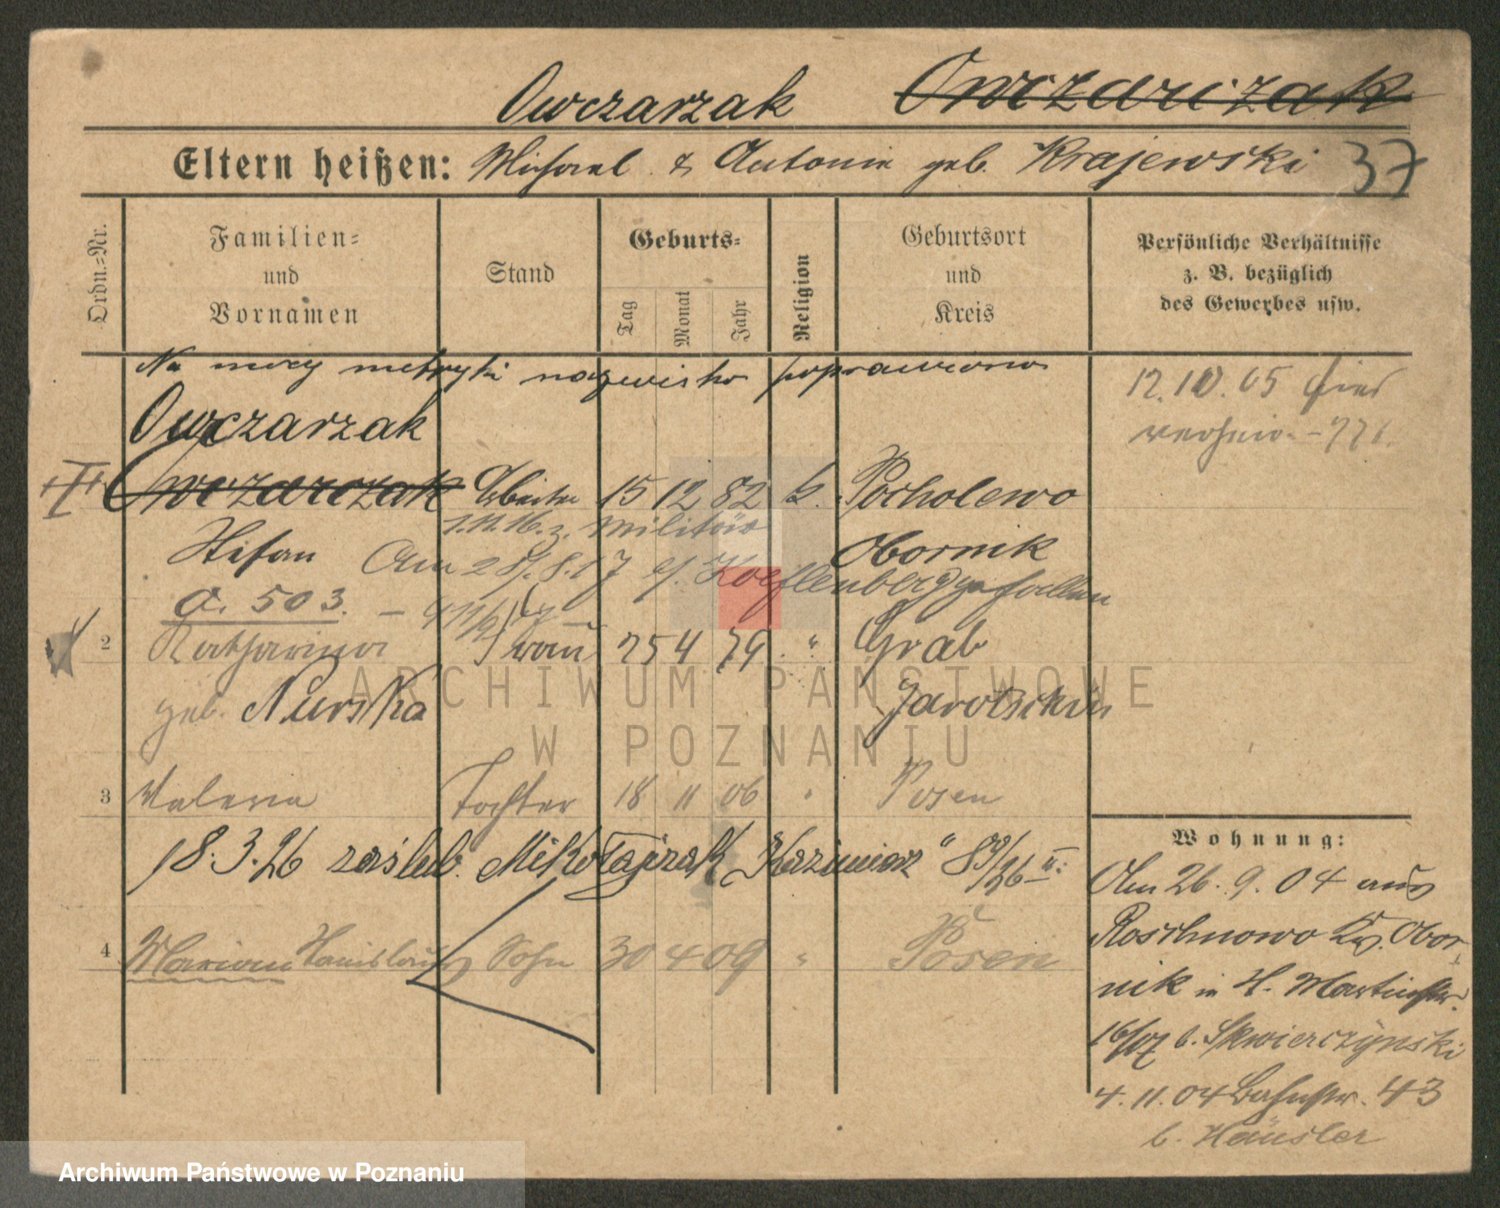 Owczarzak Owczarczak
Eltern heißen: Michael & Antonie geb. Krajewski 37
Ordn.-Nr.
Familien-
und
Vornamen
Stand
Geburts-
Tag
Monat
Jahr
Religion
Geburtsort
und
Kreis
Persönliche Verhältnisse
z. B. bezüglich
des Gewerbes usw.
Na mocy metryki nazwisko poprawiono
12.10.05 hier
Owczarzak
Owczarczak Arbeiter 15 12 82 k. Pocholewo
1.11.16. z. Militär
Stefan Obornik
Am 28/.8.17 gefallen
a. 503.
2 Katharina Frau 25 4 79 " Grab
geb. Nurska Jarotschin
3 Valeria Tochter 18 11 06 " Posen
18.3.26 zaślub. Mikołajczak Kazimierz
4 Marian Stanislaus Sohn 30 4 09 " Posen
Wohnung:
Am 26.9.04 aus
Roschnowo Kr. Obor-
nik in H. Martinstr.
16/07 b. Skwierczynski
4.11.04 Bahnstr. 43
b. Häusler
ARCHIWUM PAŃSTWOWE
W POZNANIU
Archiwum Państwowe w Poznaniu